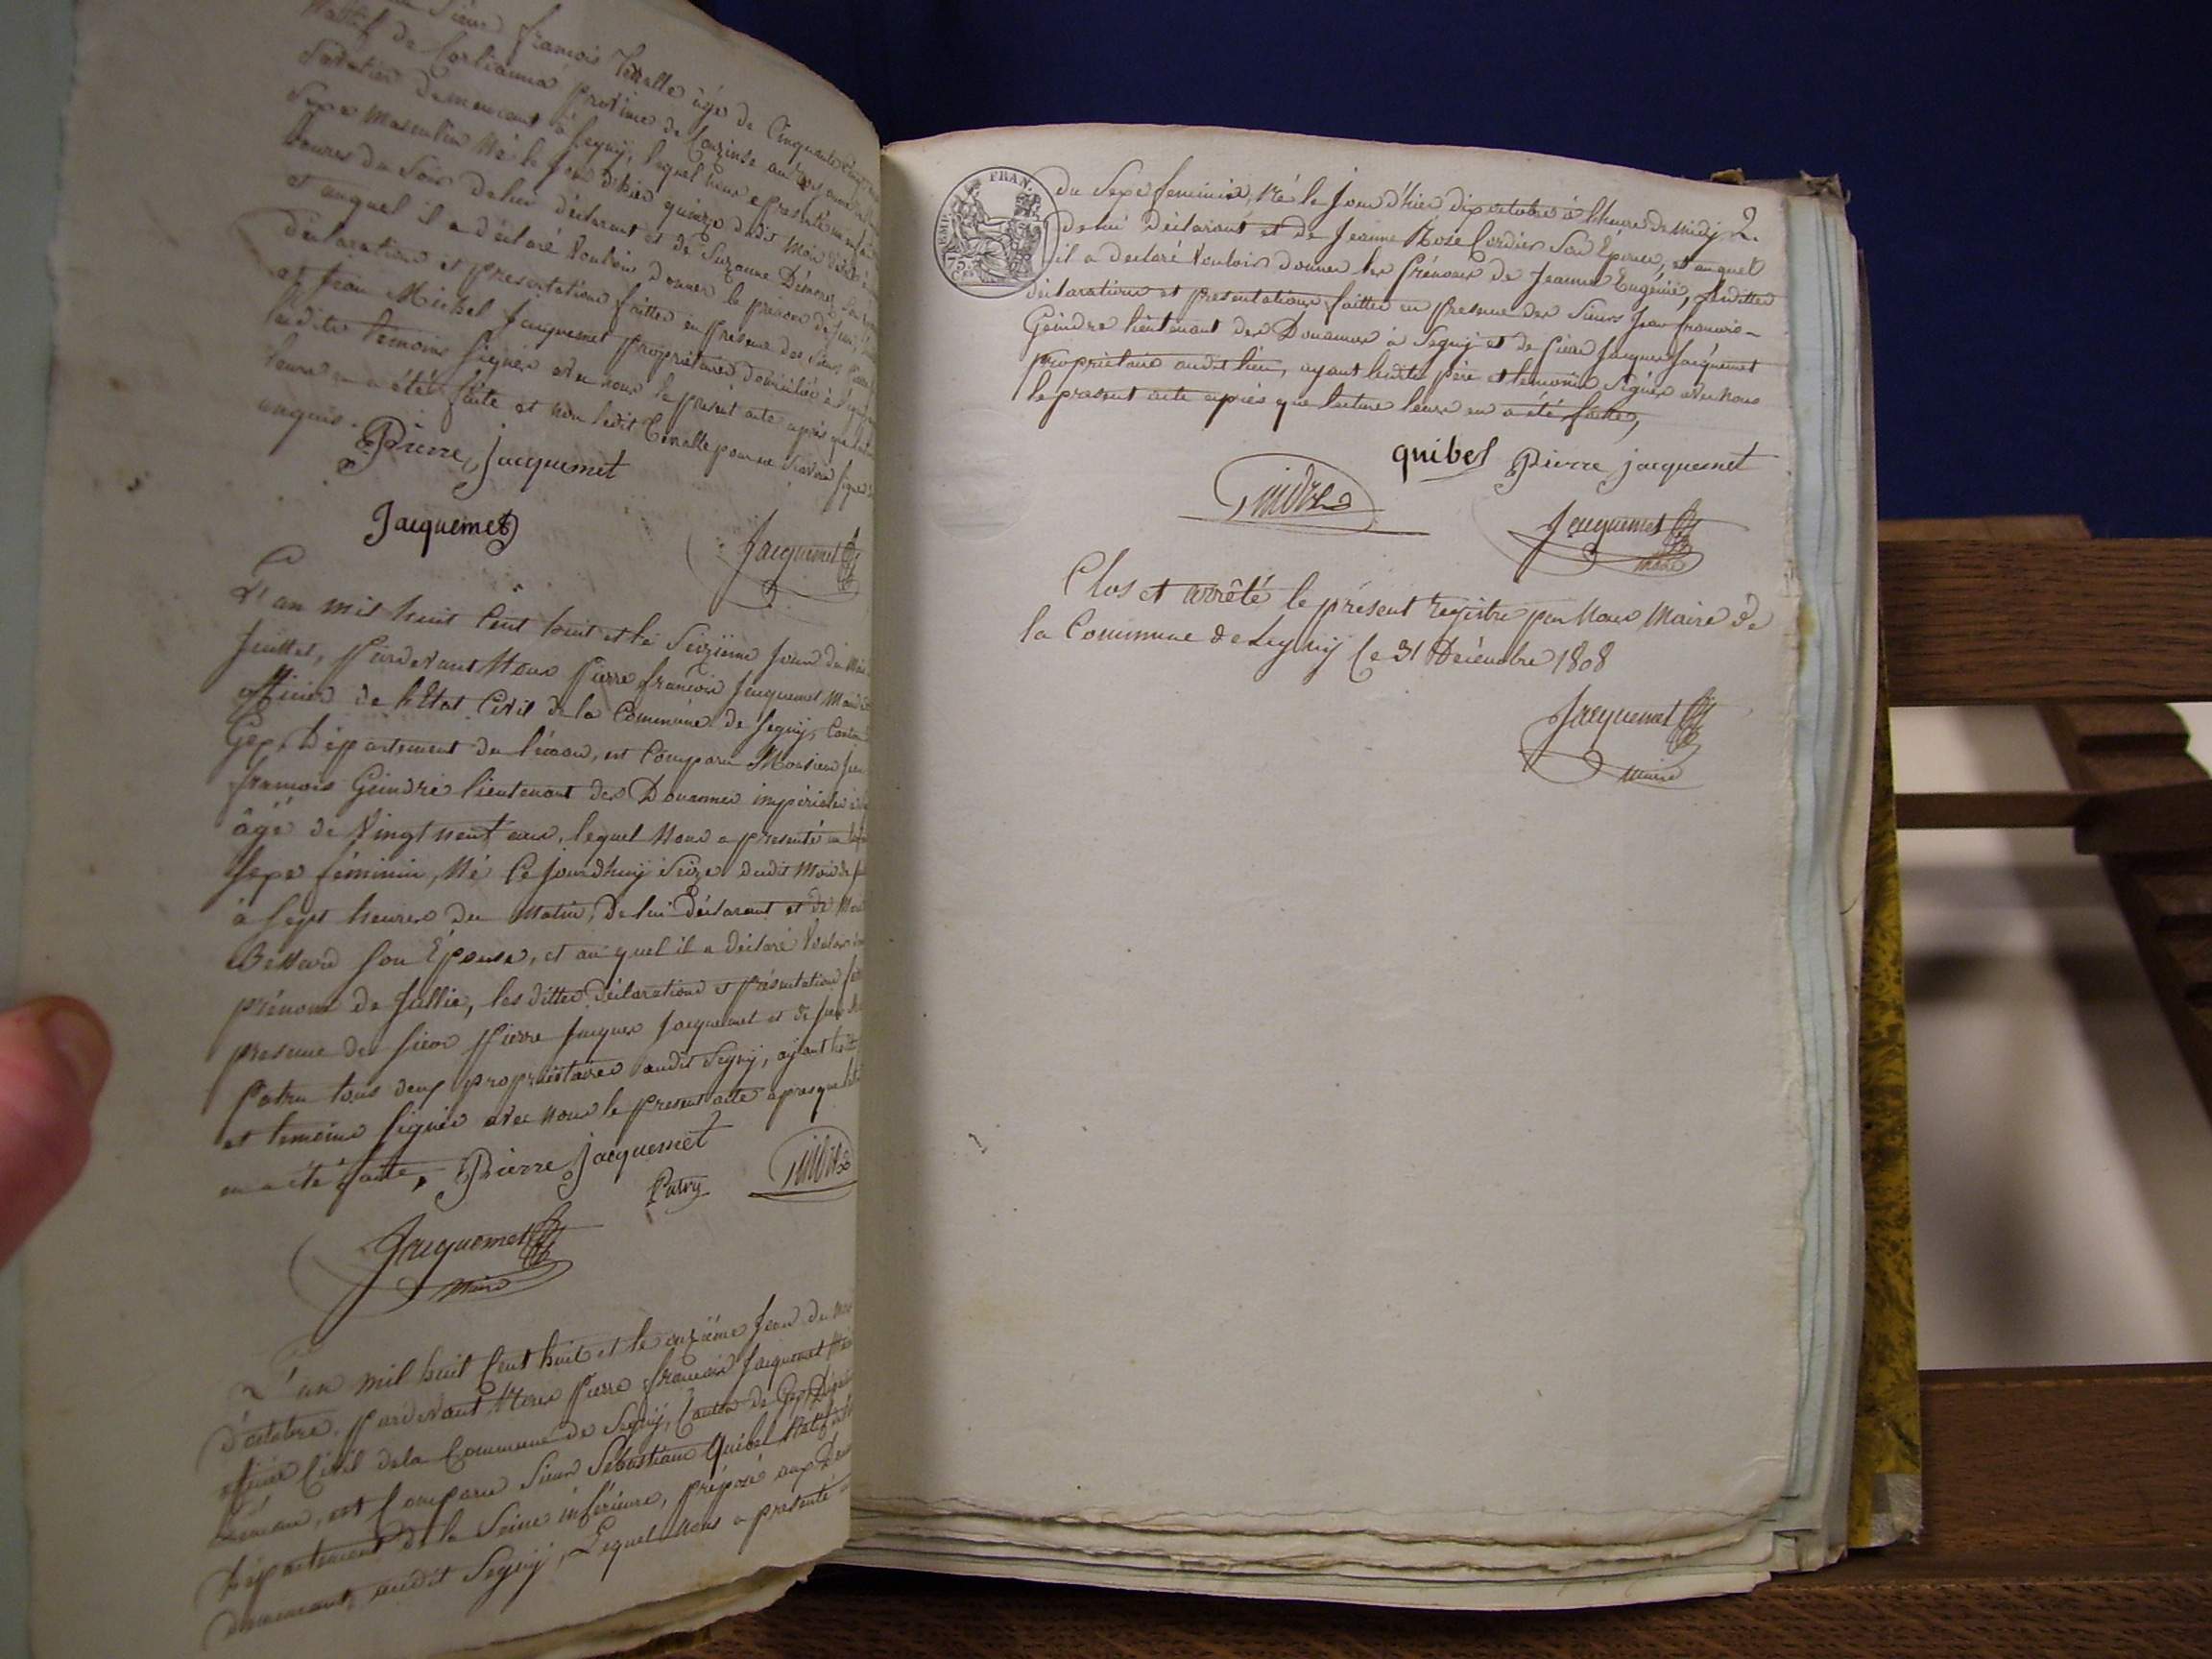 Sieur françois Tenalle âgé de Cinquante cinq
Natif de province de
demeurant à Segny, lequel nous a presenté un
Sexe masculin Né le jour d'hier quinze dudit Mois
heures du Soir de lui déclarant et de Suzanne
et auquel il a déclaré Vouloir donner le prénom de
déclaration et presentation faittes en presence des Sieurs
et Jean Michel Jacquemet propriétaires domiciliés à
témoins signés avec nous le present acte après que
leurs en a été faite et non ledit Tenalle pour ne Savoir signer
enquis.
Pierre jacquemet
Jacquemet
Jacquemet
L'an mil huit Cent huit et le Seizième jour du Mois
Juillet, Pardevant Nous Pierre françois Jacquemet Maire
officier de l'Etat Civil de la Commune de Segny, Canton
Gex, Département du Léman, est Comparu Monsieur
françois Geindre lieutenant des Douannes impériales
âgé de Vingt neuf ans, lequel Nous a presenté un
Sexe féminin, Né Ce jourdhuy Seize dudit Mois de
à Sept heures du Matin, de lui Déclarant et de
Son Epouse, et au quel il a déclaré Vouloir
prénom de Jullie, les dittes déclaration et présentation
presence des Sieur Pierre Jacques Jacquemet et de
Patru tous deux propriétaires audit Segny, ayant
et temoins signés avec nous le present acte apres que
en a été faitte, Pierre jacquemet
Patru Geindre
Jacquemet
Maire
L'an mil huit Cent huit et le onzième Jour du mois
d'octobre, Pardevant Nous Pierre françois Jacquemet
officier Civil dela Commune de Segny, Canton de Gex,
Léman, est Comparu Sieur Sébastien Quibel Natif
Département de la Seine inférieure, préposé aux
demeurant audit Segny, Lequel Nous a presenté
2.
FRAN.
du Sexe feminin, Né le Jour d'hier dix octobre à l'heure de midy
de lui Déclarant et de Jeanne Rose Cordier Son Epouse, et auquel
il a declaré Vouloir donner les Prénoms de Jeanne Eugénie, lesdittes
déclaration et presentation faittes en presence des Sieurs Jean françois
Geindre lieutenant des Douannes à Segny et de Pierre Jacques Jacquemet
propriétaire audit lieu, ayant lesdits père et temoins Signés avec nous
le present acte après que lecture leurs en a été faitte,
quibel Pierre jacquemet
Geindre
Jacquemet
maire
Clos et arrêté le présent registre par Nous Maire de
la Commune de Segny le 31 Décembre 1808
Jacquemet
Maire